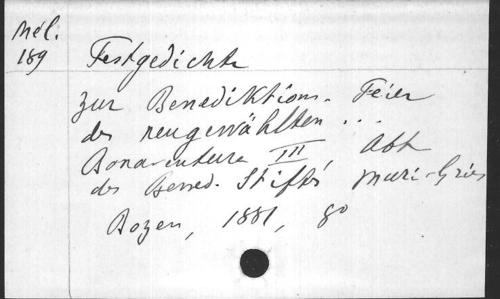 Mél.
189
Festgedichte
zur Benediktions-Feier
des neugewählten ...
Bonaventura III, Abt
des Bened. Stiftes Muri-Gries
Bozen, 1881, 8o